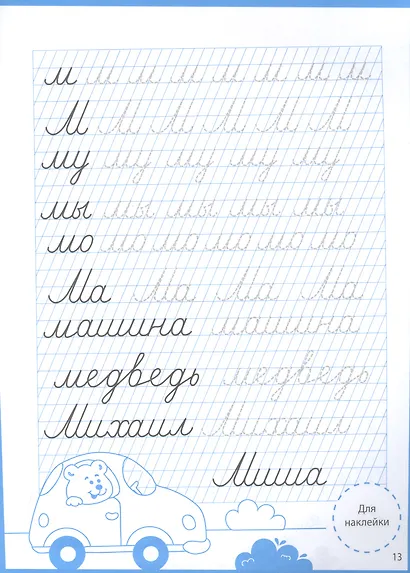 м м м м м м м м
М М М М М М
му му му му му
мы мы мы мы мы
мо мо мо мо мо мо
Ма Ма Ма Ма
машина машина
медведь медведь
Михаил Михаил
Миша
Для
наклейки
13